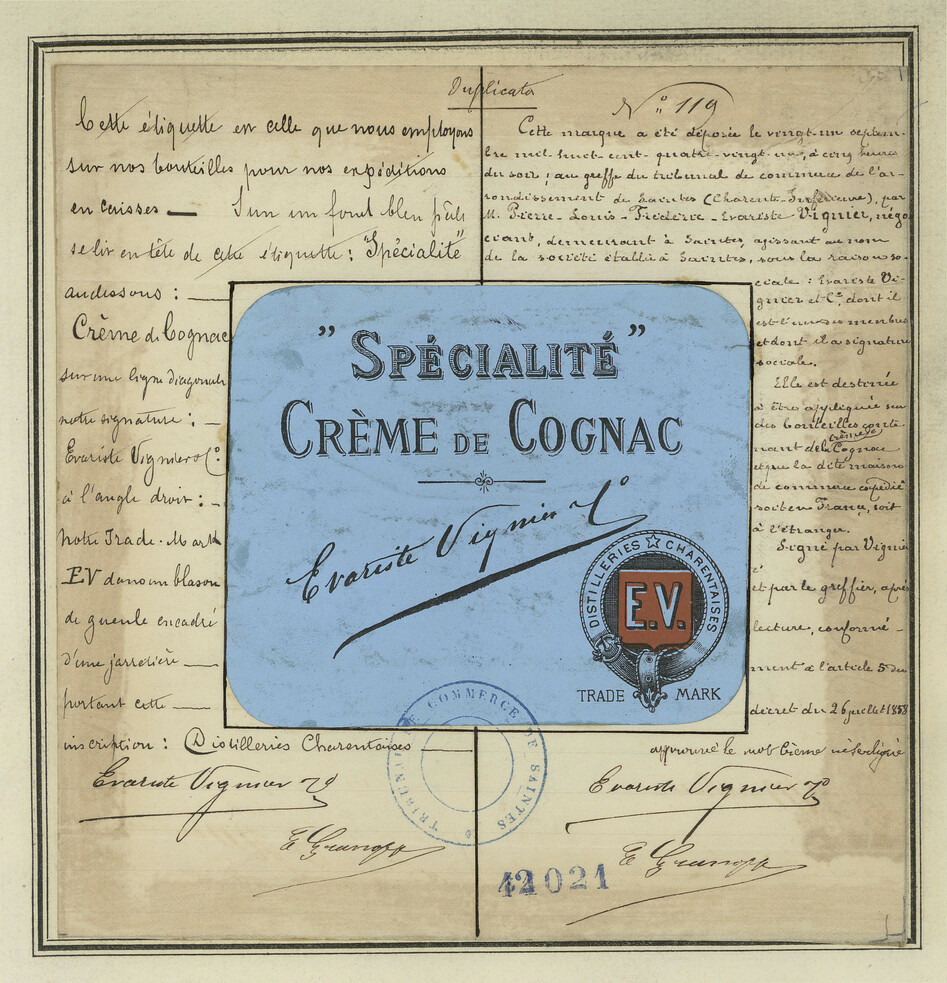 Duplicata
Cette étiquette est celle que nous employons
sur nos bouteilles pour nos expéditions
en caisses — Sur un fond bleu pâle
se lit en tête de cette étiquette : "Spécialité"
au dessous : —
Crème de Cognac
sur une ligne diagonale
notre signature : —
Evariste Vignier & Cº
à l'angle droit : —
Notre Trade-Mark
EV dans un blason
de gueule encadré
d'une jarretière —
portant cette —
inscription : Distilleries Charentaises —
Evariste Vignier & Cº
Nº 119
Cette marque a été déposée le vingt-un septem-
bre mil-huit-cent-quatre-vingt-un, à cinq heures
du soir, au greffe du tribunal de commerce de l'ar-
rondissement de Saintes (Charente-Inférieure), par
M. Pierre-Louis-Fréderic-Evariste Vignier, négo
ciant, demeurant à Saintes, agissant au nom
de la société établie à Saintes, sous la raison so-
ciale : Evariste Vi-
gnier et Cie, dont il
est l'un des membres
et dont il a signature
sociale.
Elle est destinée
à être appliquée sur
des bouteilles conte
nant de la crème de Cognac
et que la dite maison
de commerce expédie
soit en France, soit
à l'étranger.
Signé par Vignier
et par le greffier, après
lecture, conformé-
ment à l'article 5 du
décret du 26 juillet 1858
approuvé le mot crème
Evariste Vignier & Cº
"SPÉCIALITÉ"
CRÈME DE COGNAC
Evariste Vignier & Cº
DISTILLERIES CHARENTAISES
E.V.
TRADE MARK
TRIBUNAL DE COMMERCE DE SAINTES
42021